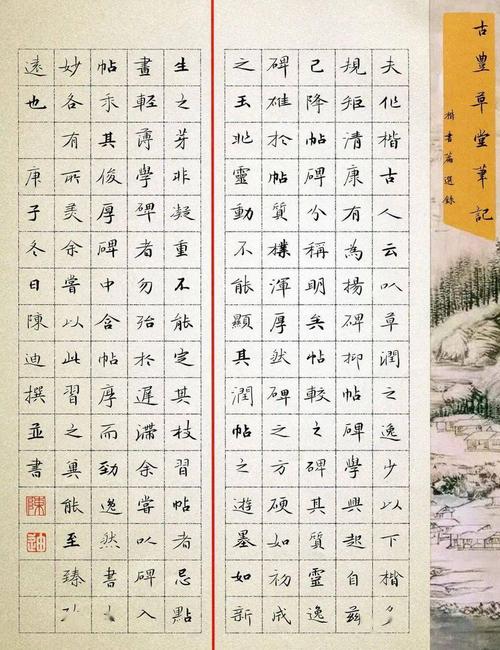 古豐草堂筆記
楷書篇選錄
夫作楷古人云以草潤之逸少以下楷多
規矩清康有為揚碑抑帖碑學興起自茲
已降帖碑分稱明矣帖較之碑其質靈逸
碑雄於帖質樸渾厚然碑之方硬如初成
之玉非靈動不能顯其潤帖之遊墨如新
生之芽非凝重不能定其枝習帖者忌點
畫輕薄學碑者勿殆於遲滯余嘗以碑入
帖求其俊厚碑中含帖厚而勁逸然書
妙各有所美余嘗以此習之冀能至臻
遠也 庚子冬日陳迪撰並書
陳
迪